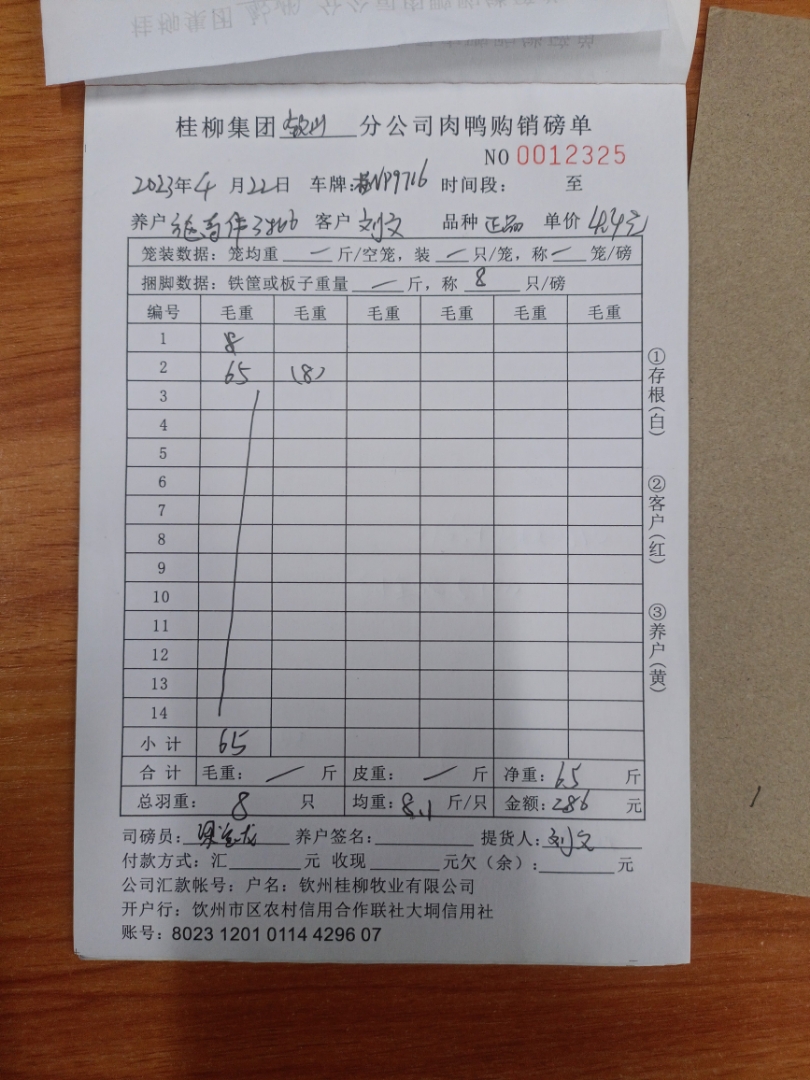 桂柳集团 钦州 分公司肉鸭购销磅单
NO 0012325
2023年4月22日 车牌: NP9716 时间段: 至
养户 客户 刘文 品种 正品 单价 4.4元
笼装数据: 笼均重 — 斤/空笼, 装 — 只/笼, 称 — 笼/磅
捆脚数据: 铁筐或板子重量 — 斤, 称 8 只/磅
编号 毛重 毛重 毛重 毛重 毛重 毛重
1 8
2 65 (8)
3
4
5
6
7
8
9
10
11
12
13
14
小计 65
合计 毛重: — 斤 皮重: — 斤 净重: 65 斤
总羽重: 8 只 均重: 8.1 斤/只 金额: 286 元
司磅员: 养户签名: 提货人: 刘文
付款方式: 汇 元 收现 元欠(余): 元
公司汇款帐号: 户名: 钦州桂柳牧业有限公司
开户行: 饮州市区农村信用合作联社大垌信用社
账号: 8023 1201 0114 4296 07
①存根(白)
②客户(红)
③养户(黄)